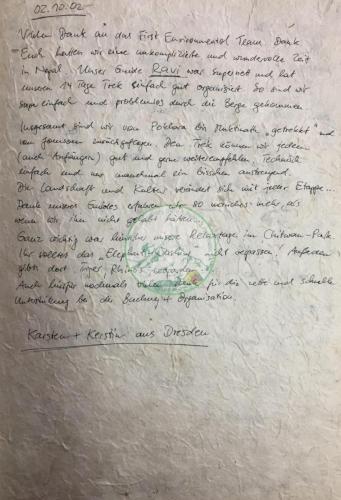 02.10.02
Vielen Dank an das First Environmental Team. Dank
Euch hatten wir eine unkomplizierte und wundervolle Zeit
in Nepal. Unser Guide Ravi war supernett und hat
unseren 14 Tage Trek einfach gut organisiert. So sind wir
einfach und problemlos durch die Berge gekommen.
Insgesamt sind wir von Pokhara bis Muktinath "getrekkt" und
von Jomosom zurückgeflogen. Den Trek können wir jedem
(auch Anfängern) gut und gerne weiterempfehlen. Technisch
einfach und nur manchmal ein bisschen anstrengend.
Die Landschaft und Kultur verändert sich mit jeder Etappe...
Dank unseres Guides erfuhren wir so natürliches mehr, als
wenn wir ihn nicht gehabt hätten.
Ganz wichtig war hinterher unsere Relaxtage im Chitwan-Park.
Ihr solltet das "Elephant nicht verpassen. Außerdem
gibts dort Tiger, Rhinos, Leoparden.
Auch hierfür nochmals vielen Dank für die nette und schnelle
Unterstützung bei der Buchung + Organisation.
Karsten + Kerstin aus Dresden